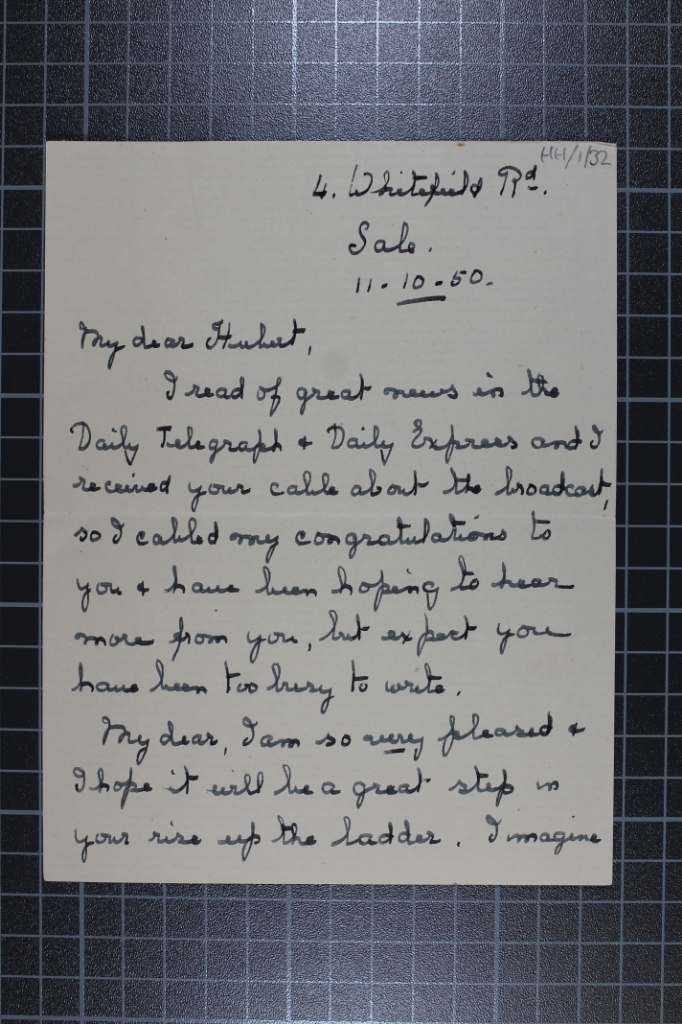 HH/1/32
4. Whitefield Rd.
Sale.
11-10-50.
My dear Hubert,
I read of great news in the
Daily Telegraph & Daily Express and I
received your cable about the broadcast,
so I cabled my congratulations to
you & have been hoping to hear
more from you, but expect you
have been too busy to write.
My dear, I am so very pleased &
I hope it will be a great step in
your rise up the ladder. I imagine